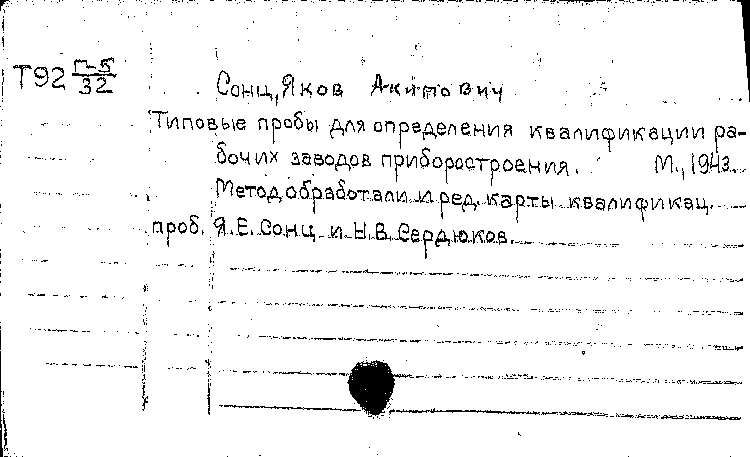 Т92 П-5/32
Сонц, Яков Акимович
Типовые пробы для определения квалификации ра-
бочих заводов приборостроения. М., 1943.
Метод. обработали и ред. карты квалификац.
проб. Я.Е. Сонц и Н.В. Сердюков.